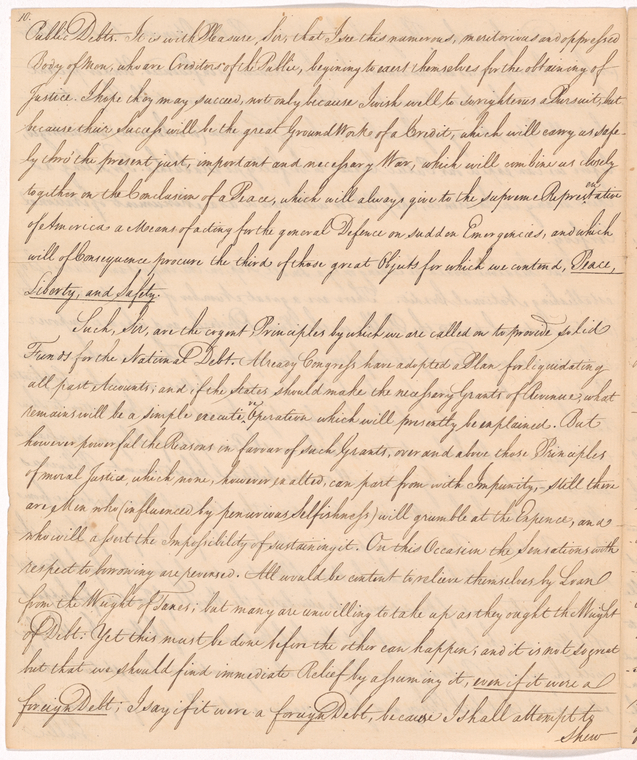 10.
Public Debts. It is with Pleasure, Sir, that I see this numerous, meritorious and oppressed
Body of Men, who are Creditors of the Public, begining to exert themselves for the obtaining of
Justice. I hope they may succeed, not only because I wish well to so righteous a Pursuit, but
because their Success will be the great Ground Work of a Credit, which will carry us safe-
ly thro' the present just, important and necessary War, which will combine us closely
together on the Conclusion of a Peace, which will always give to the supreme Representative
of America a Means of acting for the general Defence on sudden Emergences, and which
will of Consequence procure the third of those great Objects for which we contend, Peace,
Liberty, and Safety.
Such, Sir, are the cogent Principles by which we are called on to provide solid
Funds for the National Debt. Already Congress have adopted a Plan for liquidating
all past Accounts; and if the States should make the necessary Grants of Revenue, what
remains will be a simple executive Operation which will presently be explained. But
however powerful the Reasons in favour of such Grants, over and above those Principles
of moral Justice, which none, however exalted, can part from with Impunity, - still there
are Men who (influenced by penurious Selfishness) will grumble at the Expence, and
who will assert the Impossibility of sustaining it. On this Occasion the Sensations with
respect to borrowing are reversed. All would be content to relieve themselves by Loan
from the Weight of Taxes; but many are unwilling to take up as they ought the Weight
of Debt. Yet this must be done before the other can happen; and it is not so great
but that we should find immediate Relief by assuming it, even if it were a
foreign Debt; I say if it were a foreign Debt, because I shall attempt to
Shew